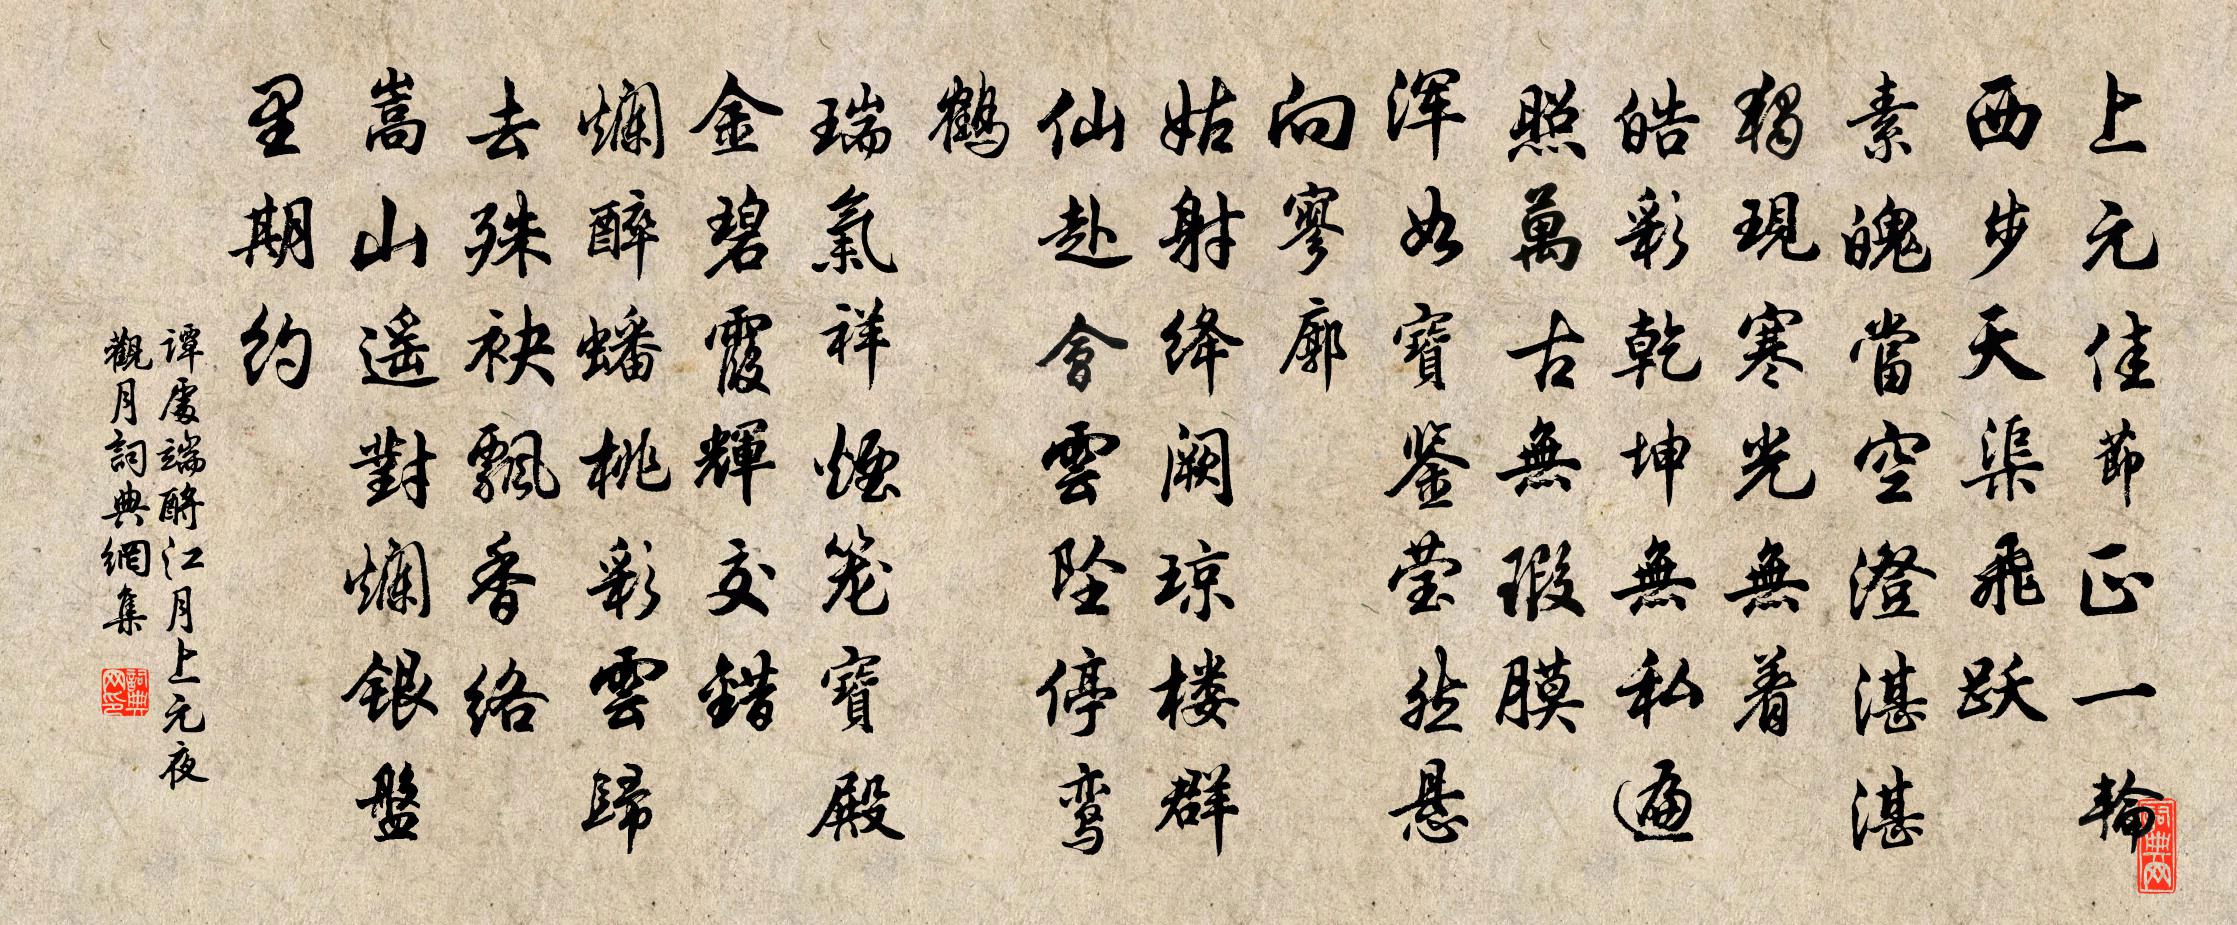 上元佳節正一輪
西步天渠飛跃
素魄當空澄湛湛
獨現寒光無着
皓彩乾坤無私遍
照萬古無瑕膜
渾如寶鉴莹然悬
向寥廓
姑射绛阙琼楼群
仙赴會雲坠停鸾
鶴
瑞氣祥煙笼寶殿
金碧霞輝交錯
爛醉蟠桃彩雲歸
去殊袂飄香络
嵩山遥對爛銀盤
里期约
谭處端酹江月上元夜
觀月詞典網集
詞典网印
詞典网